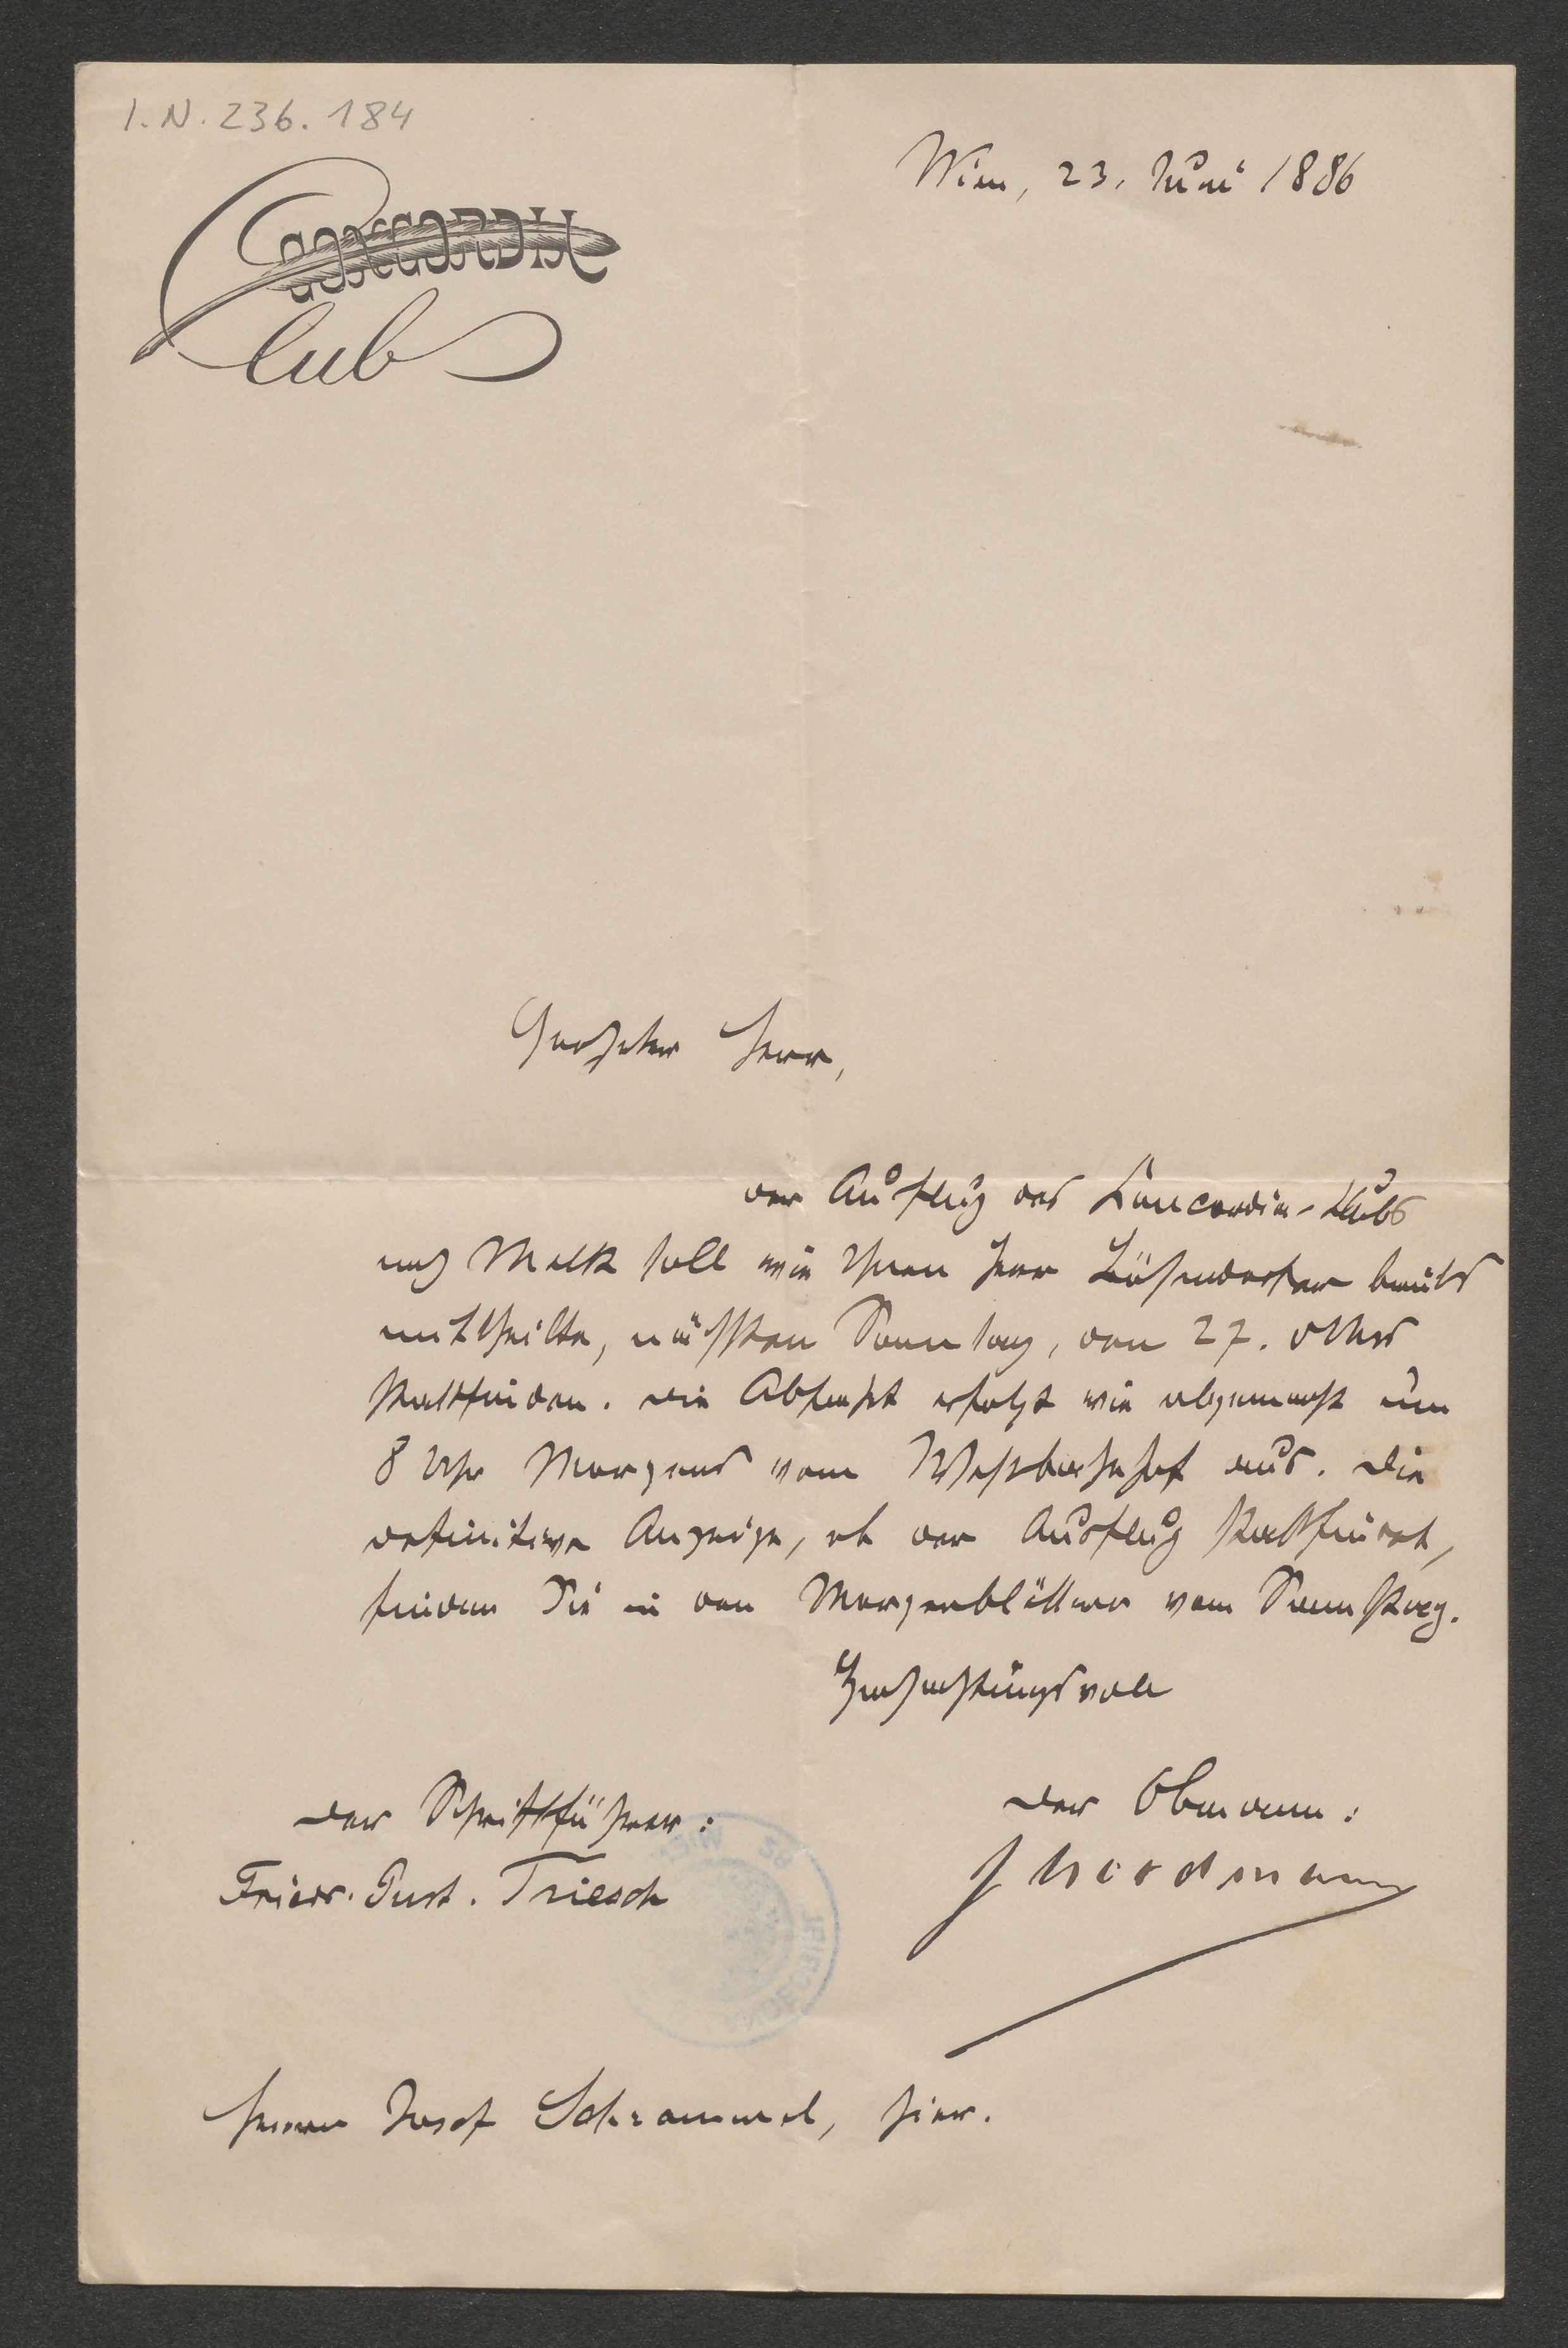 I.N. 236.184
Wien, 23. Juni 1886
CONCORDIA
Club
Geehrter Herr,
der Ausflug des Concordia-Clubs
nach Melk soll wie Ihnen Herr Bösendorfer bereits
mittheilte, nächsten Sonntag, den 27. dMts
stattfinden. Die Abfahrt erfolgt wie abgemacht um
8 Uhr Morgens vom Westbahnhof aus. Die
definitive Anzeige, ob der Ausflug stattfindet,
finden Sie in den Morgenblättern vom Samstag.
Hochachtungsvoll
Der Schriftführer:
Der Obmann:
Friedr. Gust. Triesch
J Nordmann
Herrn Josef Schrammel, hier.